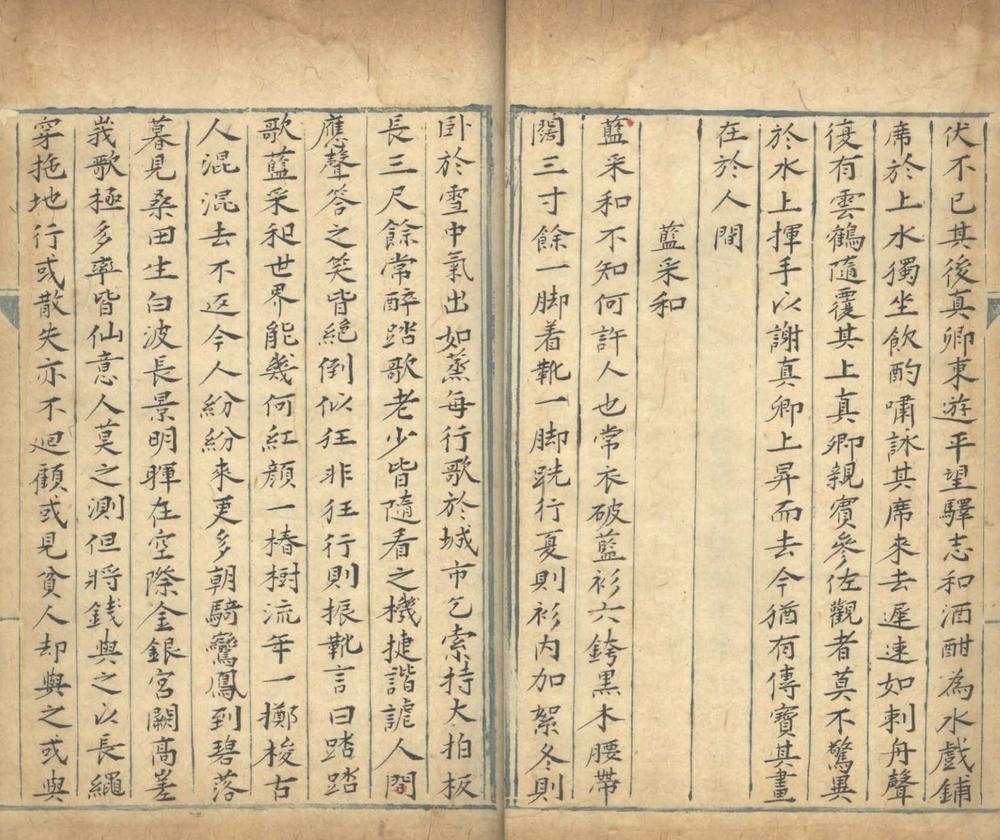 伏不已其後真卿東遊平望驛志和酒酣為水戲鋪
席於上水獨坐飲酌嘯詠其席來去遲速如刺舟聲
復有雲鶴隨覆其上真卿親賓參佐觀者莫不驚異
於水上揮手以謝真卿上昇而去今猶有傳寶其畫
在於人間
藍采和
藍采和不知何許人也常衣破藍衫六銙黑木腰帶
闊三寸餘一脚着靴一脚跣行夏則衫内加絮冬則
卧於雪中氣出如蒸每行歌於城市乞索持大拍板
長三尺餘常醉踏歌老少皆隨看之機捷諧謔人問
應聲答之笑皆絕倒似狂非狂行則振靴言曰踏踏
歌藍采和世界能幾何紅顏一椿樹流年一擲梭古
人混混去不返今人紛紛來更多朝騎鸞鳳到碧落
暮見桑田生白波長景明暉在空際金銀宮闕高嵳
峩歌極多率皆仙意人莫之測但將錢與之以長繩
穿拖地行或散失亦不迴顧或見貧人却與之或與